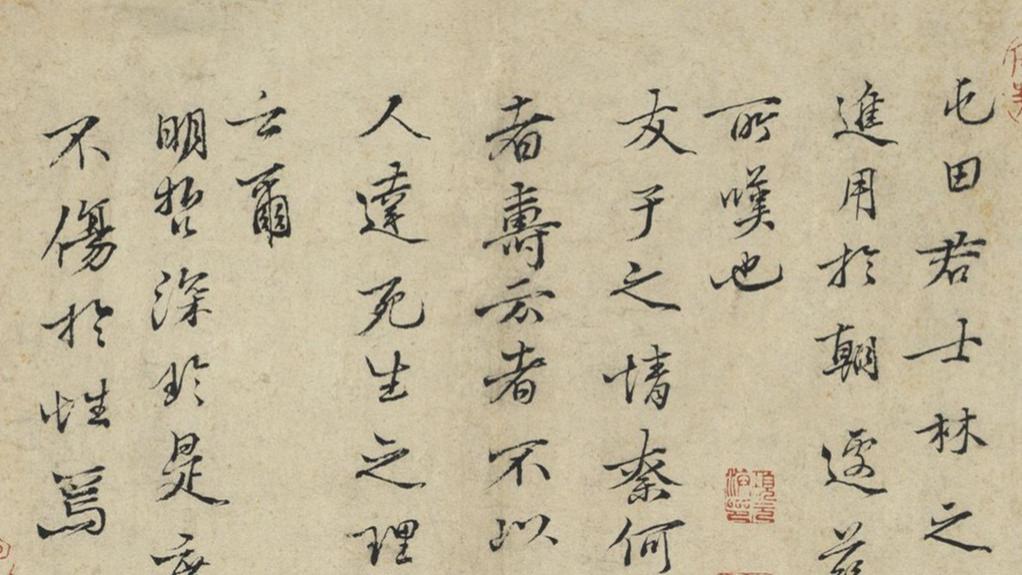 屯田君士林之
進用於朝遽茲
所嘆也
友于之情柰何
者壽夭者不以
人達死生之理
云爾
明哲深於是
不傷於性焉